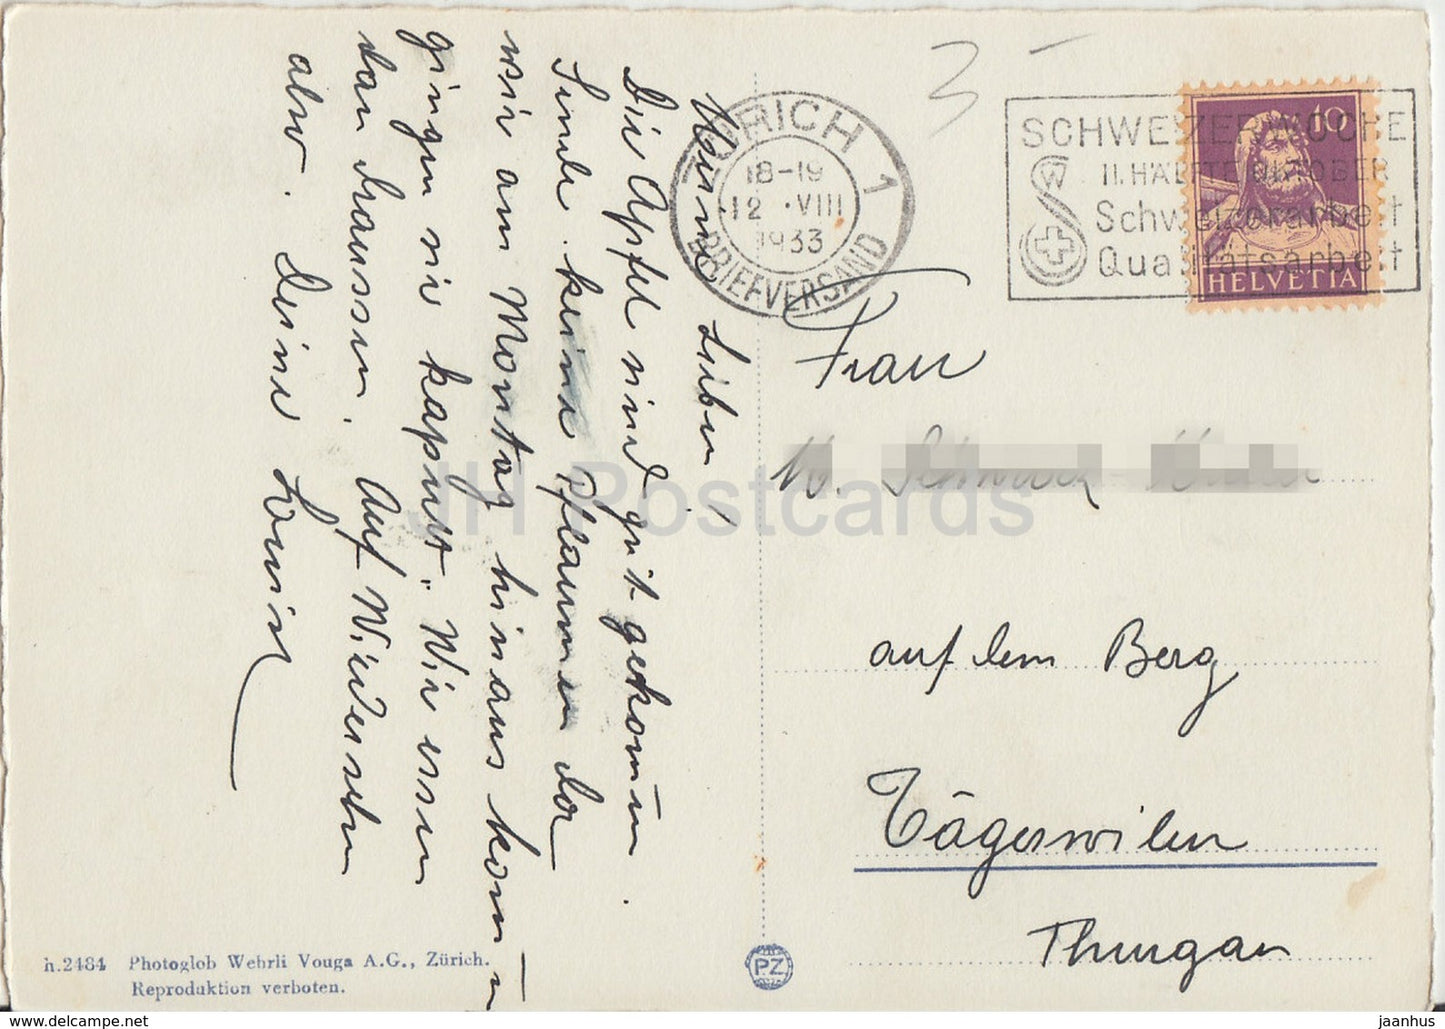 Meine Lieben!
Die Äpfel sind gut gekommen.
Sende keine Pflaumen da
wir am Montag hinaus kommen
gingen sie kaput. Wir essen
dan draussen. Auf Wiedersehn
also. Deine Louise
ZÜRICH 1
18-19
12.VIII
1933
BRIEFVERSAND
3 -
SCHWEIZERWOCHE
II. HÄLFTE OKTOBER
Schweizerarbeit
Qualitätsarbeit
W
10
HELVETIA
Frau
auf dem Berg
Tägerwilen
Thurgau
JH Postcards
h.2484 Photoglob Wehrli Vouga A.G., Zürich.
Reproduktion verboten.
PZ
www.delcampe.net
jaanhus